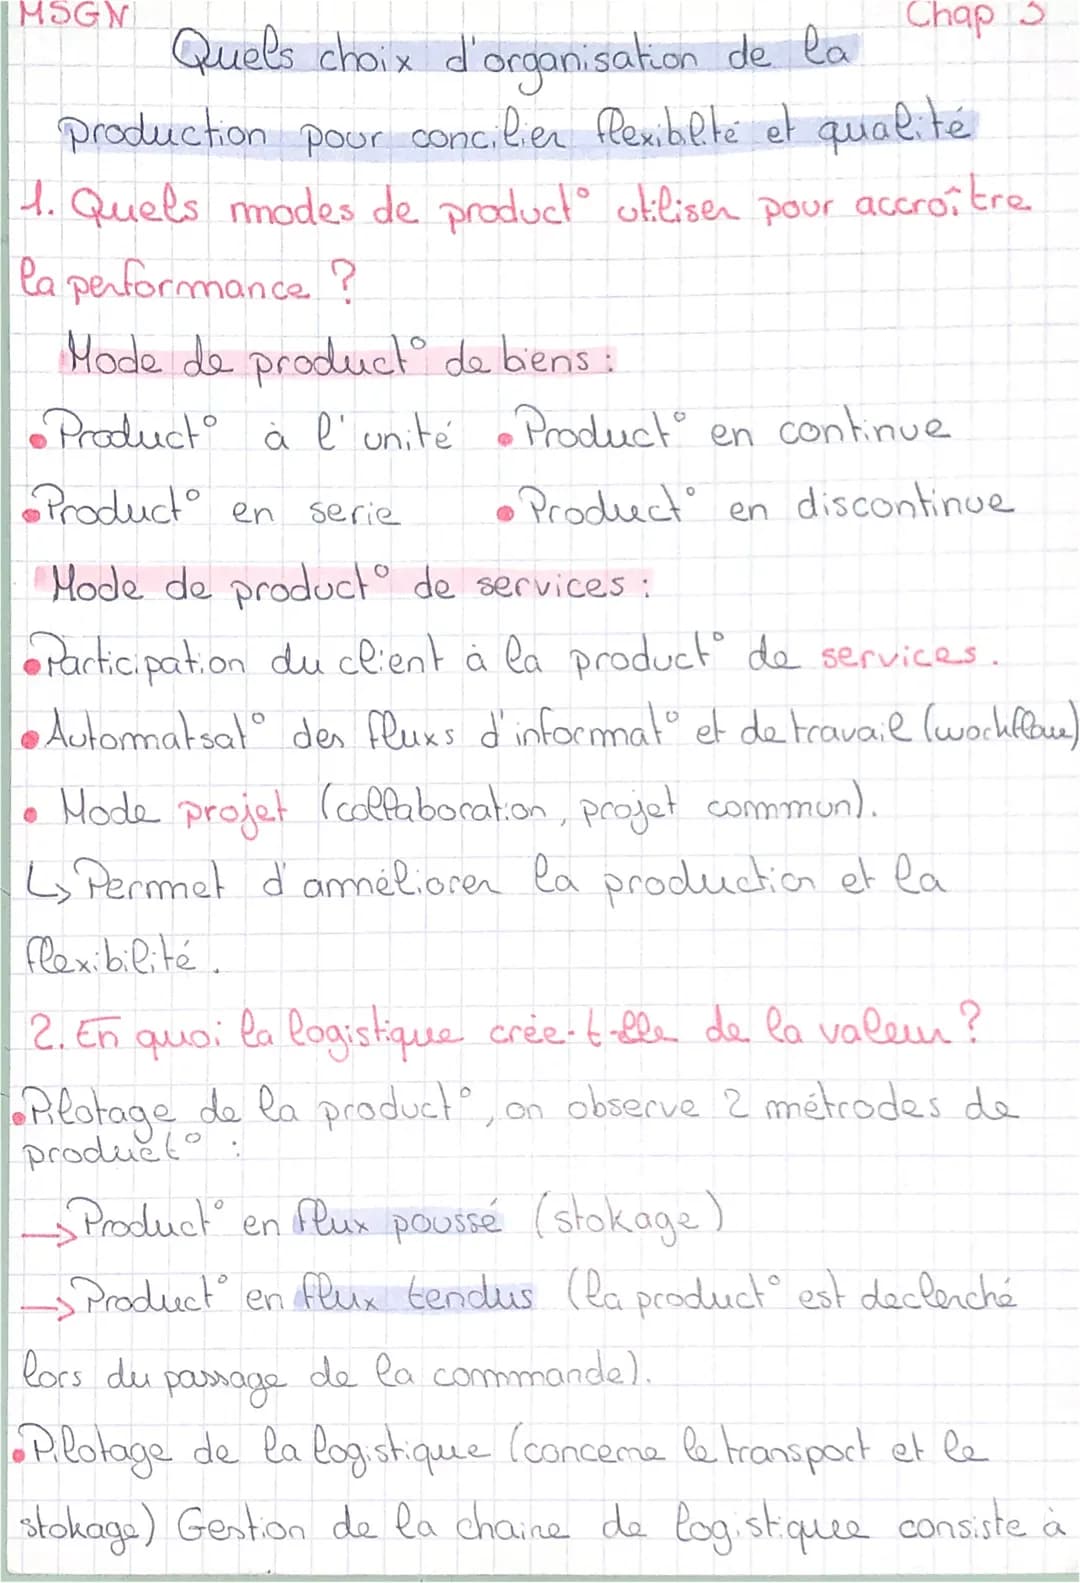 MSGN Chap 3
Quels choix d'organisation de la
production pour concilier flexiblté et qualité
1. Quels modes de product° utiliser pour accroître
la performance ?
Mode de product° de biens :
• Product° à l'unité • Product° en continue
• Product° en serie • Product° en discontinue
Mode de product° de services :
• Participation du client à la product° de services.
• Automatsat° des fluxs d'informat° et de travail (workflow)
• Mode projet (collaboration, projet commun).
↳ Permet d'améliorer la production et la
flexibilité.
2. En quoi la logistique crée-t-elle de la valeur ?
• Pilotage de la product°, on observe 2 métrodes de
product° :
→ Product° en flux poussé (stokage)
→ Product° en flux tendus (la product° est declenché
lors du passage de la commande).
• Pilotage de la logistique (concerne le transport et le
stokage) Gestion de la chaine de logistique consiste à